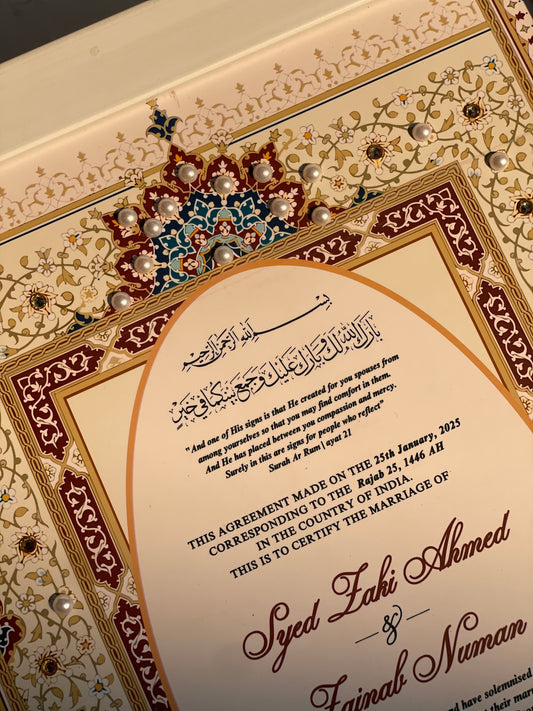 بسم الله الرحمن الرحيم
بارك الله لك وبارك عليك وجمع بينكما في خير
" And one of His signs is that He created for you spouses from
among yourselves so that you may find comfort in them.
And He has placed between you compassion and mercy.
Surely in this are signs for people who reflect"
Surah Ar Rum \ ayat 21
THIS AGREEMENT MADE ON THE 25th January, 2025
CORRESPONDING TO THE Rajab 25, 1446 AH
IN THE COUNTRY OF INDIA.
THIS IS TO CERTIFY THE MARRIAGE OF
Syed Zaki Ahmed
&
Zainab Numan
nd have solemnised
their mar